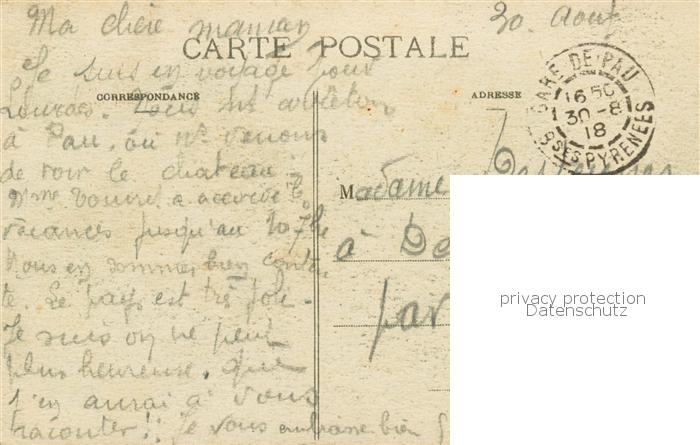 Ma chère maman
30 Août
CARTE POSTALE
Je suis en voyage pour
CORRESPONDANCE
ADRESSE
Lourdes. Nous ns arrêtons
à Pau, où ns venons
de voir le chateau.
Mme a accordé
vacances jusqu'au
Nous en sommes bien conten
te. Le pays est très joli.
Je suis on ne peut
plus heureuse, que
j'en aurai à vous
raconter!! Je vous embrasse bien
GARE DE PAU
16 50
30-8
18
BSES PYRENEES
Madame
à De
par
privacy protection
Datenschutz